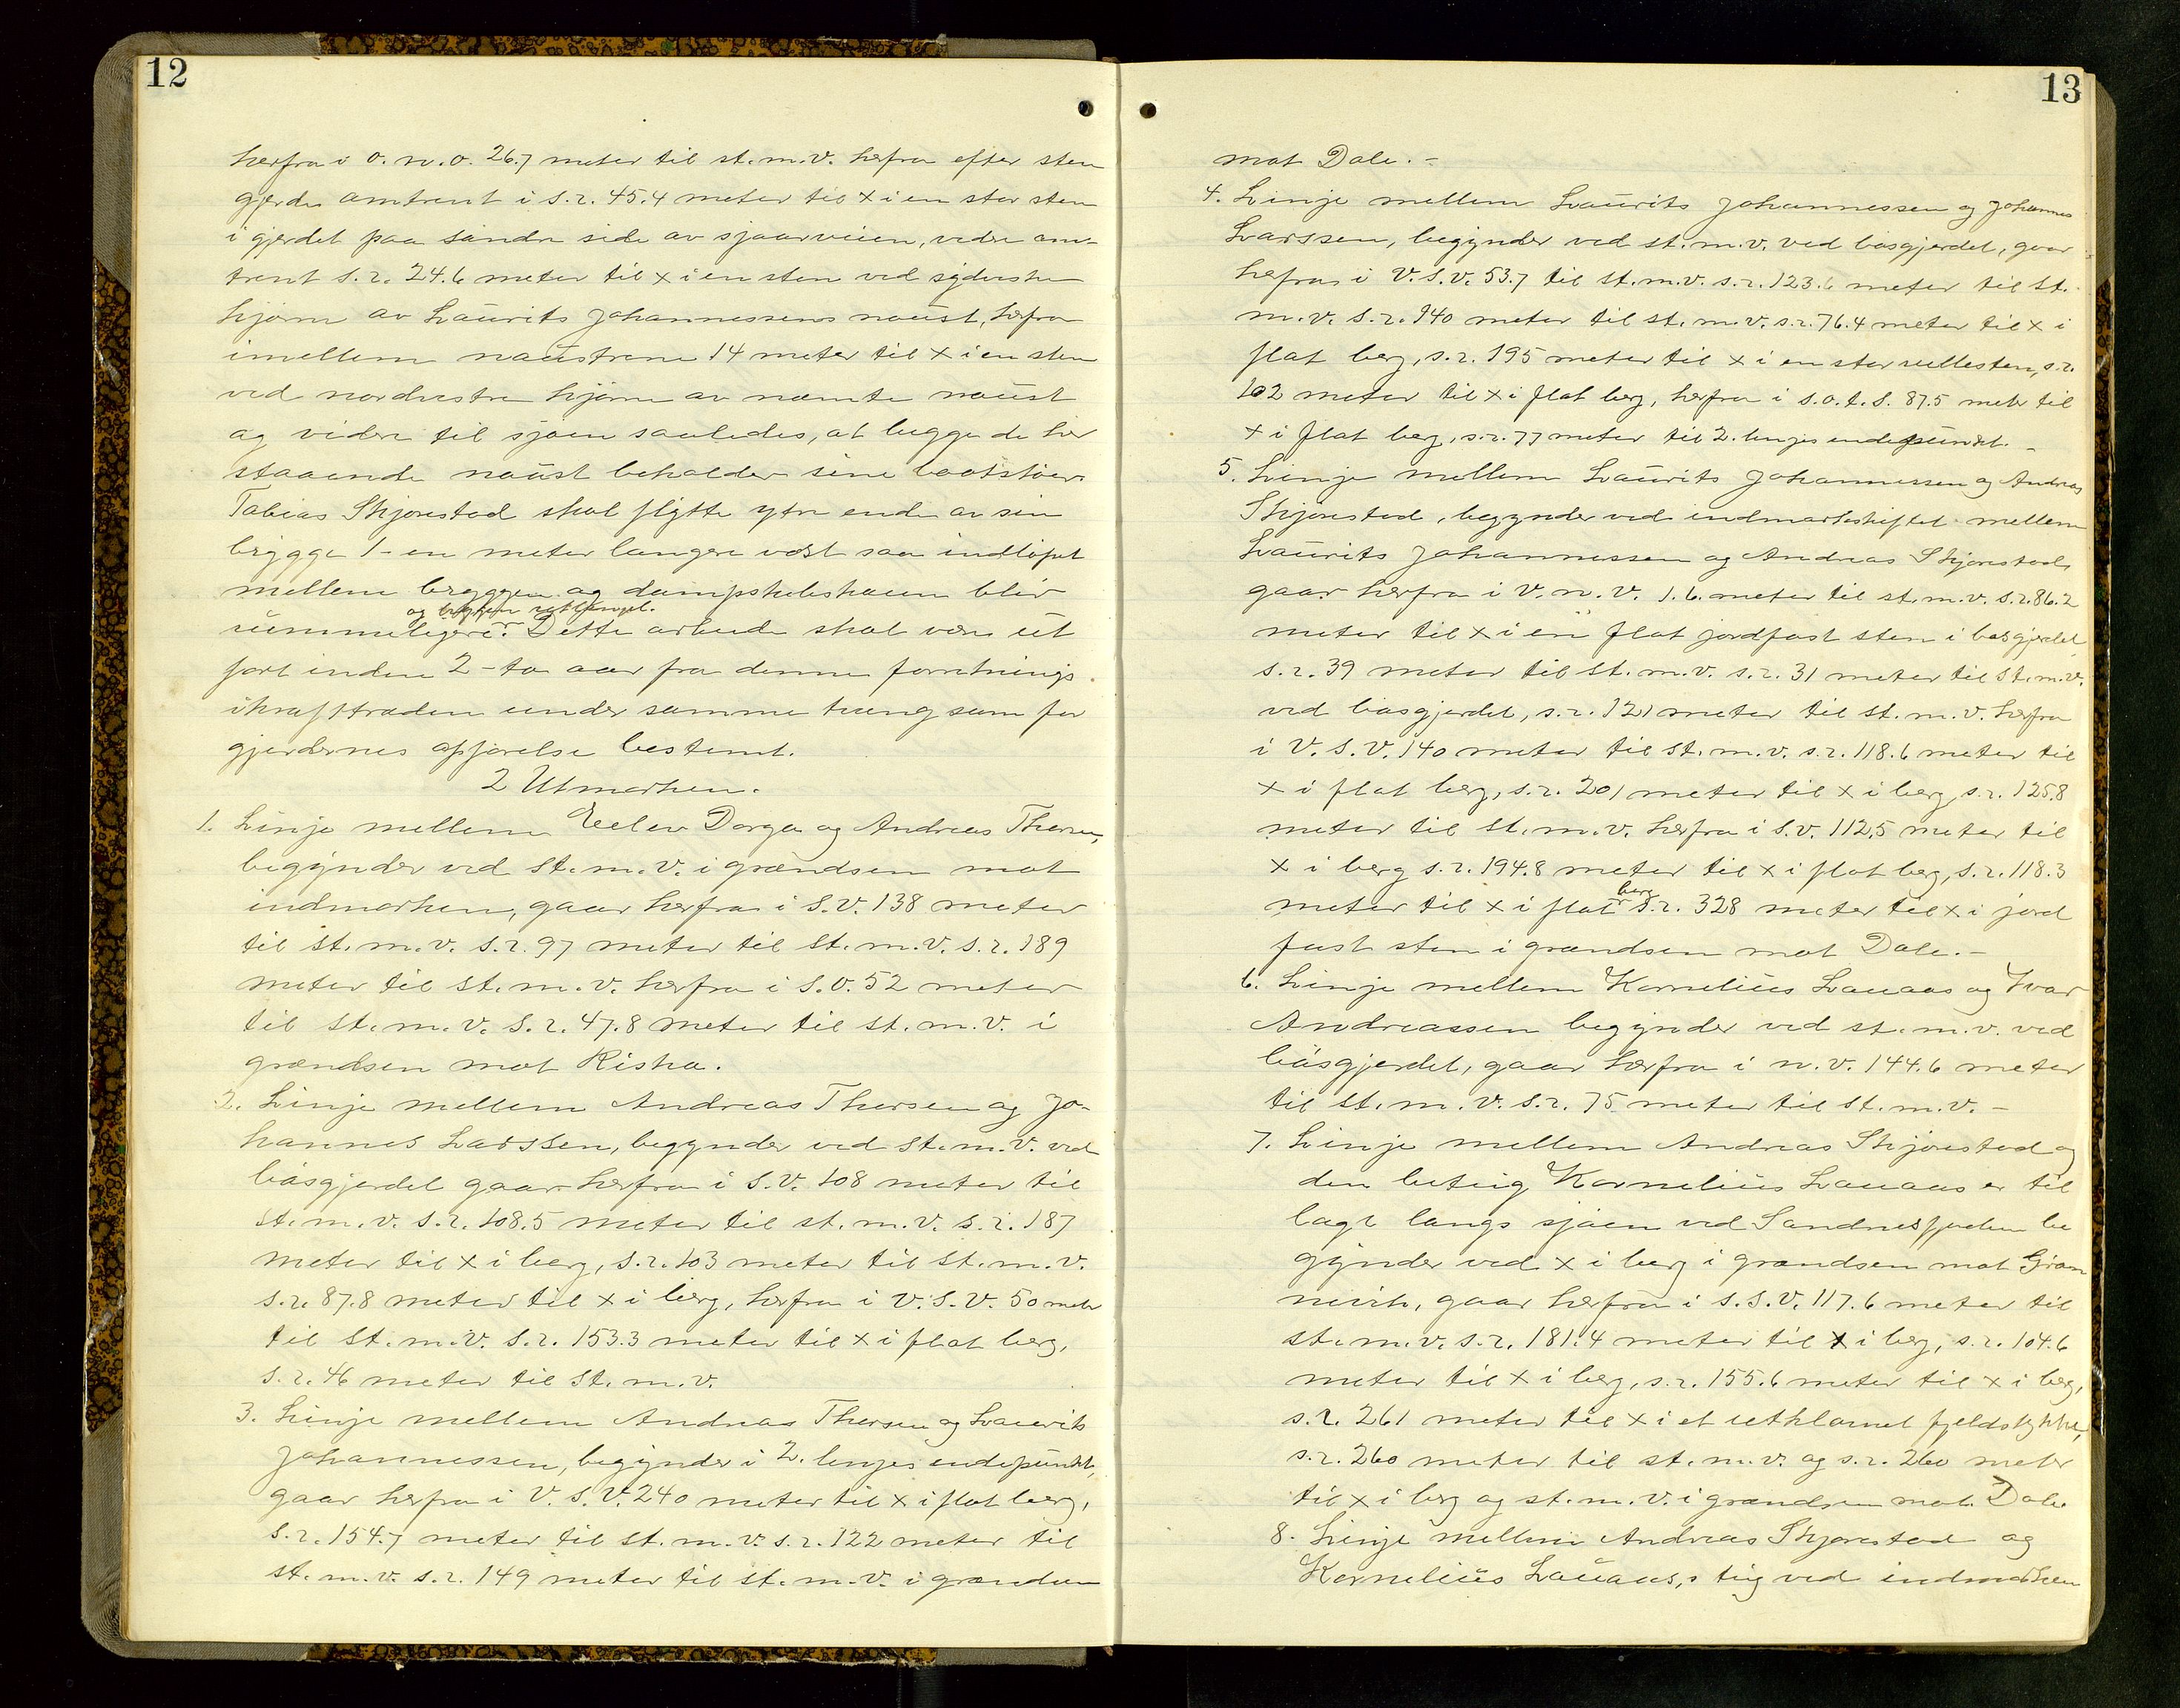 12
herfra i o. n. o. 26.7 meter til st. m. v. herfra efter sten
gjerde omtrent i s. r. 45.4 meter til x i en stor sten
i gjerdet paa søndre side av sjøarveien, videre om-
trent s. r. 24.6 meter til x i en sten ved syderste
hjørne av Laurits Johannessens naust, herfra
imellem naustene 14 meter til x i en sten
ved nordvestre hjørne av nœmte naust
og videre til sjøen saaledes, at begge de her
staaende naust beholder sine baatstøer.
Tobias Skjørestad skal flytte ytre ende av sin
brygge 1 - en meter længere vest saa indløpet
mellem bryggen og dampskibskaien blir
og bryggen
rummeligere. Dette arbeide skal være ut
ført inden 2 - to aar fra denne forretnings
ikrafttræden under samme tvang som for
gjerdernes opførelse bestemt.
2 Utmarken.
1. Linje mellem Eelev Dorga og Andreas Thorsen,
begynder ved st. m. v. i grændsen mot
indmarken, gaar herfra i S. V. 138 meter
til st. m. v. s. r. 97 meter til st. m. v. s. r. 189
meter til st. m. v. herfra i S. O. 52 meter
til st. m. v. s. r. 47.8 meter til st. m. v. i
grændsen mot Riska.
2. Linje mellem Andreas Thorsen og Jo-
hannes Larssen, begynder ved st. m. v. ved
bøsgjerdet gaar herfra i S. V. 108 meter til
st. m. v. s. r. 108.5 meter til st. m. v. s. r. 187
meter til x i berg, s. r. 103 meter til st. m. v.
s. r. 87.8 meter til x i berg, herfra i V. S. V. 50 meter
til st. m. v. s. r. 153.3 meter til x i flat berg,
s. r. 46 meter til st. m. v.
3. Linje mellem Andreas Thorsen og Laurits
Johannessen, begynder i 2. linjes endepunkt,
gaar herfra i V. S. V. 240 meter til x i flat berg,
s. r. 154.7 meter til st. m. v. s. r. 122 meter til
st. m. v. s. r. 149 meter til st. m. v. i grændsen
13
mot Dale. -
4. Linje mellem Laurits Johannessen og Johannes
Larssen, begynder ved st. m. v. ved bøsgjerdet, gaar
herfra i V. S. V. 53.7 til st. m. v. s. r. 123.6 meter til st.
m. v. s. r. 140 meter til st. m. v. s. r. 76.4 meter til x i
flat berg, s. r. 195 meter til x i en stor rullesten, s. r.
102 meter til x i flat berg, herfra i s. o. t. s. 87.5 meter til
x i flat berg, s. r. 77 meter til 2. linjes endepunkt. -
5. Linje mellem Laurits Johannessen og Andreas
Skjørestad, begynder ved indmarkskiftet mellem
Laurits Johannessen og Andreas Skjørestad,
gaar herfra i V. n. V. 1.6. meter til st. m. v. s. r. 86.2
meter til x i en flat jordfast sten i bøsgjerdet,
s. r. 39 meter til st. m. v. s. r. 31 meter til st. m. v.
ved bøsgjerdet, s. r. 121 meter til st. m. v. herfra
i V. S. V. 140 meter til st. m. v. s. r. 118.6 meter til
x i flat berg, s. r. 201 meter til x i berg, s. r. 125.8
meter til st. m. v. herfra i S. V. 112.5 meter til
x i berg s. r. 194.8 meter til x i flat berg, s. r. 118.3
berg
meter til x i flat s. r. 328 meter til x i jord
fast sten i grændsen mot Dale. -
6. Linje mellem Kornelius Lauaas og Ivar
Andreassen begynder ved st. m. v. ved
bøsgjerdet, gaar herfra i n. v. 144.6 meter
til st. m. v. s. r. 75 meter til st. m. v. -
7. Linje mellem Andreas Skjørestad og
den buteig Kornelius Lauaas er til
lagt langs sjøen ved Sandnesfjorden be
gynder ved x i berg i grændsen mot Gran
nevik, gaar herfra i s. s. v. 117.6 meter til
st. m. v. s. r. 181.4 meter til x i berg, s. r. 104.6
meter til x i berg, s. r. 155.6 meter til x i berg,
s. r. 261 meter til x i et utklømt fjeldstykke,
s. r. 260 meter til st. m. v. og s. r. 260 meter
til x i berg og st. m. v. i grændsen mot Dale
8. Linje mellem Andreas Skjørestad og
Kornelius Lauaas, s teig ved indmarken